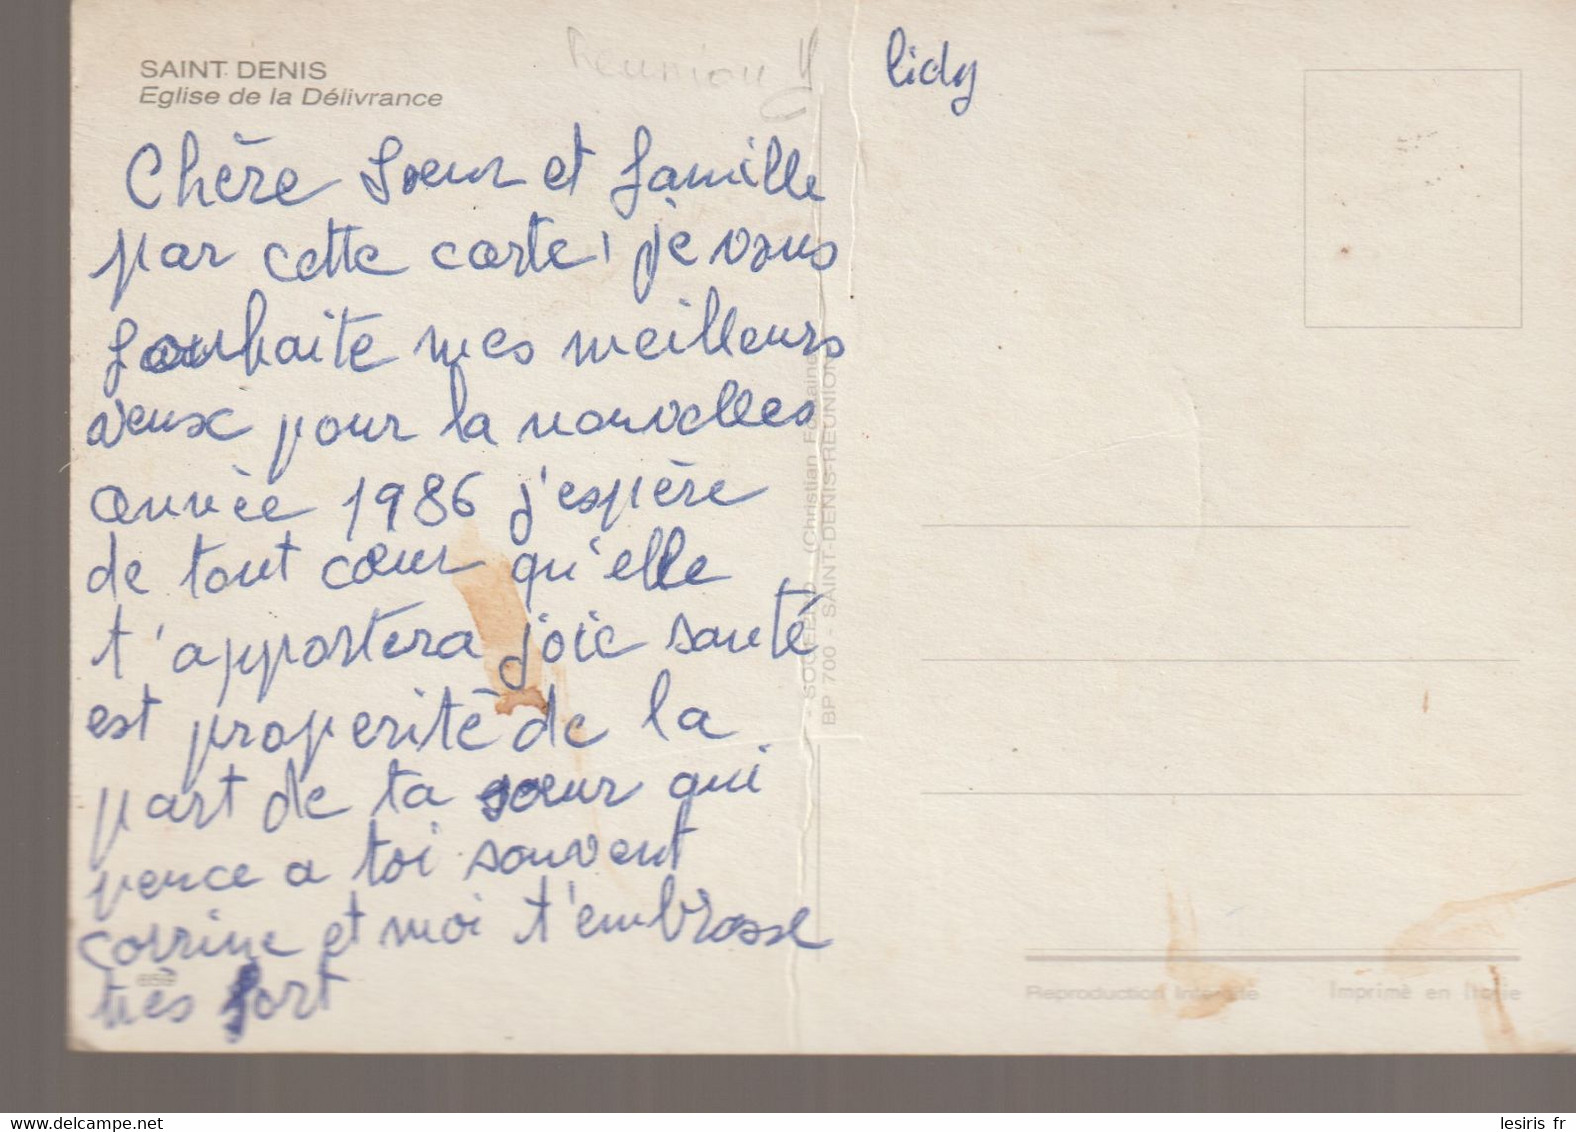 SAINT DENIS
Eglise de la Délivrance
Reunion
lidy
Chère Soeur et famille
par cette carte, je vous
Souhaite mes meilleurs
veux pour la nouvelles
année 1986 j'espère
de tout cœur qu'elle
t'apportera joie santé
est properité de la
part de ta sœur qui
pence a toi souvent
corrine et moi t'embrasse
très fort
659
- SOGEPRO (Christian Fontaine)
BP 700 - SAINT-DENIS-RÉUNION
Reproduction Interdite
Imprimè en Italie
delcampe.net
lesiris_fr